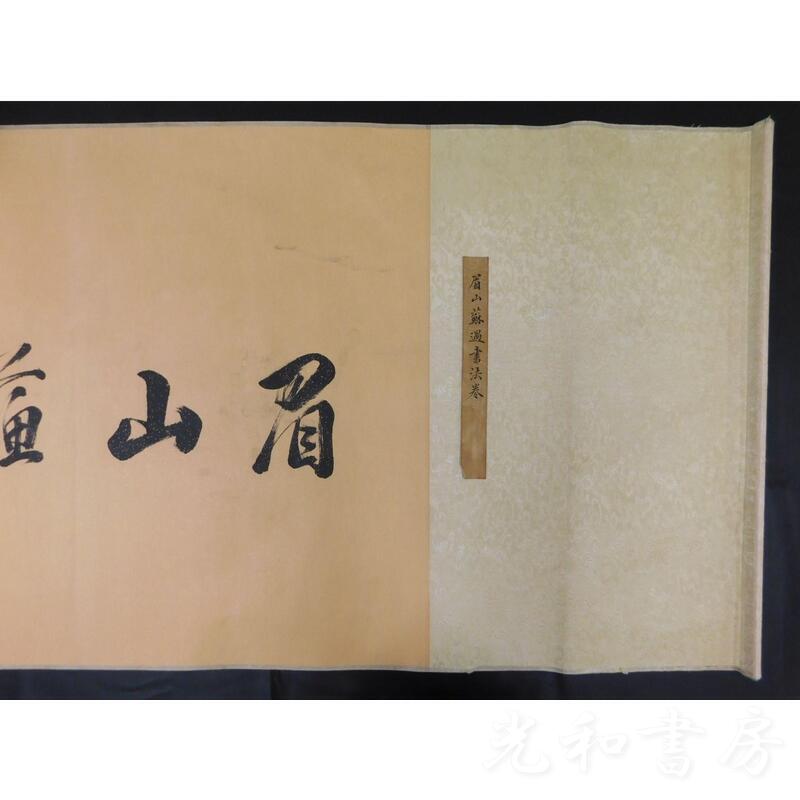 眉山
眉山蘇過書法卷
光和書房